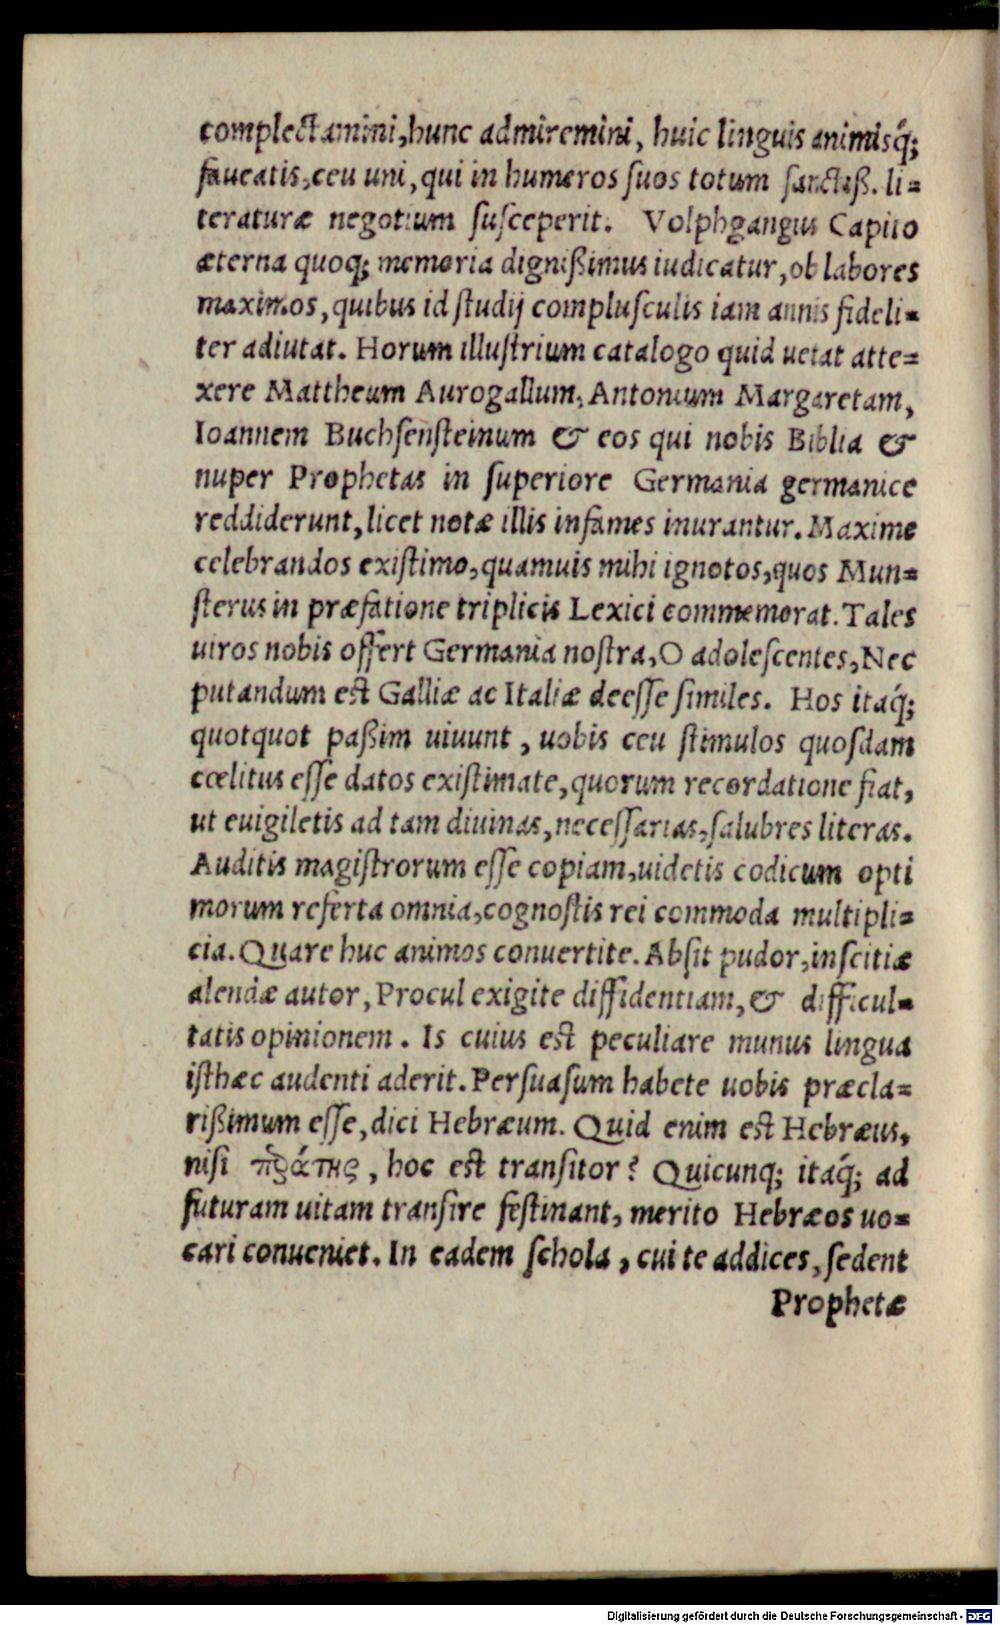 complectamini, hunc admiremini, huic linguis animisq́;
faueatis, ceu uni, qui in humeros suos totum sanctiß. li-
teraturæ negotium susceperit. Volphgangus Capito
æterna quoq; memoria dignißimus iudicatur, ob labores
maximos, quibus id studij complusculis iam annis fideli-
ter adiutat. Horum illustrium catalogo quid uetat atte-
xere Mattheum Aurogallum, Antonium Margaretam,
Ioannem Buchsensteinum & eos qui nobis Biblia &
nuper Prophetas in superiore Germania germanice
reddiderunt, licet notæ illis infames inurantur. Maxime
celebrandos existimo, quamuis mihi ignotos, quos Mun-
sterus in præfatione triplicis Lexici commemorat. Tales
uiros nobis offert Germania nostra, O adolescentes, Nec
putandum est Galliæ ac Italiæ deesse similes. Hos itaq́;
quotquot paßim uiuunt, uobis ceu stimulos quosdam
cœlitus esse datos existimate, quorum recordatione fiat,
ut euigiletis ad tam diuinas, necessarias, salubres literas.
Auditis magistrorum esse copiam, uidetis codicum opti
morum referta omnia, cognostis rei commoda multipli-
cia. Quare huc animos conuertite. Absit pudor, inscitiæ
alendæ autor, Procul exigite diffidentiam, & difficul-
tatis opinionem. Is cuius est peculiare munus lingua
isthæc audenti aderit. Persuasum habete uobis præcla-
rißimum esse, dici Hebræum. Quid enim est Hebræus,
nisi περάτης, hoc est transitor? Quicunq; itaq́; ad
futuram uitam transire festinant, merito Hebræos uo-
cari conueniet. In eadem schola, cui te addices, sedent
Prophetæ
Digitalisierung gefördert durch die Deutsche Forschungsgemeinschaft - DFG